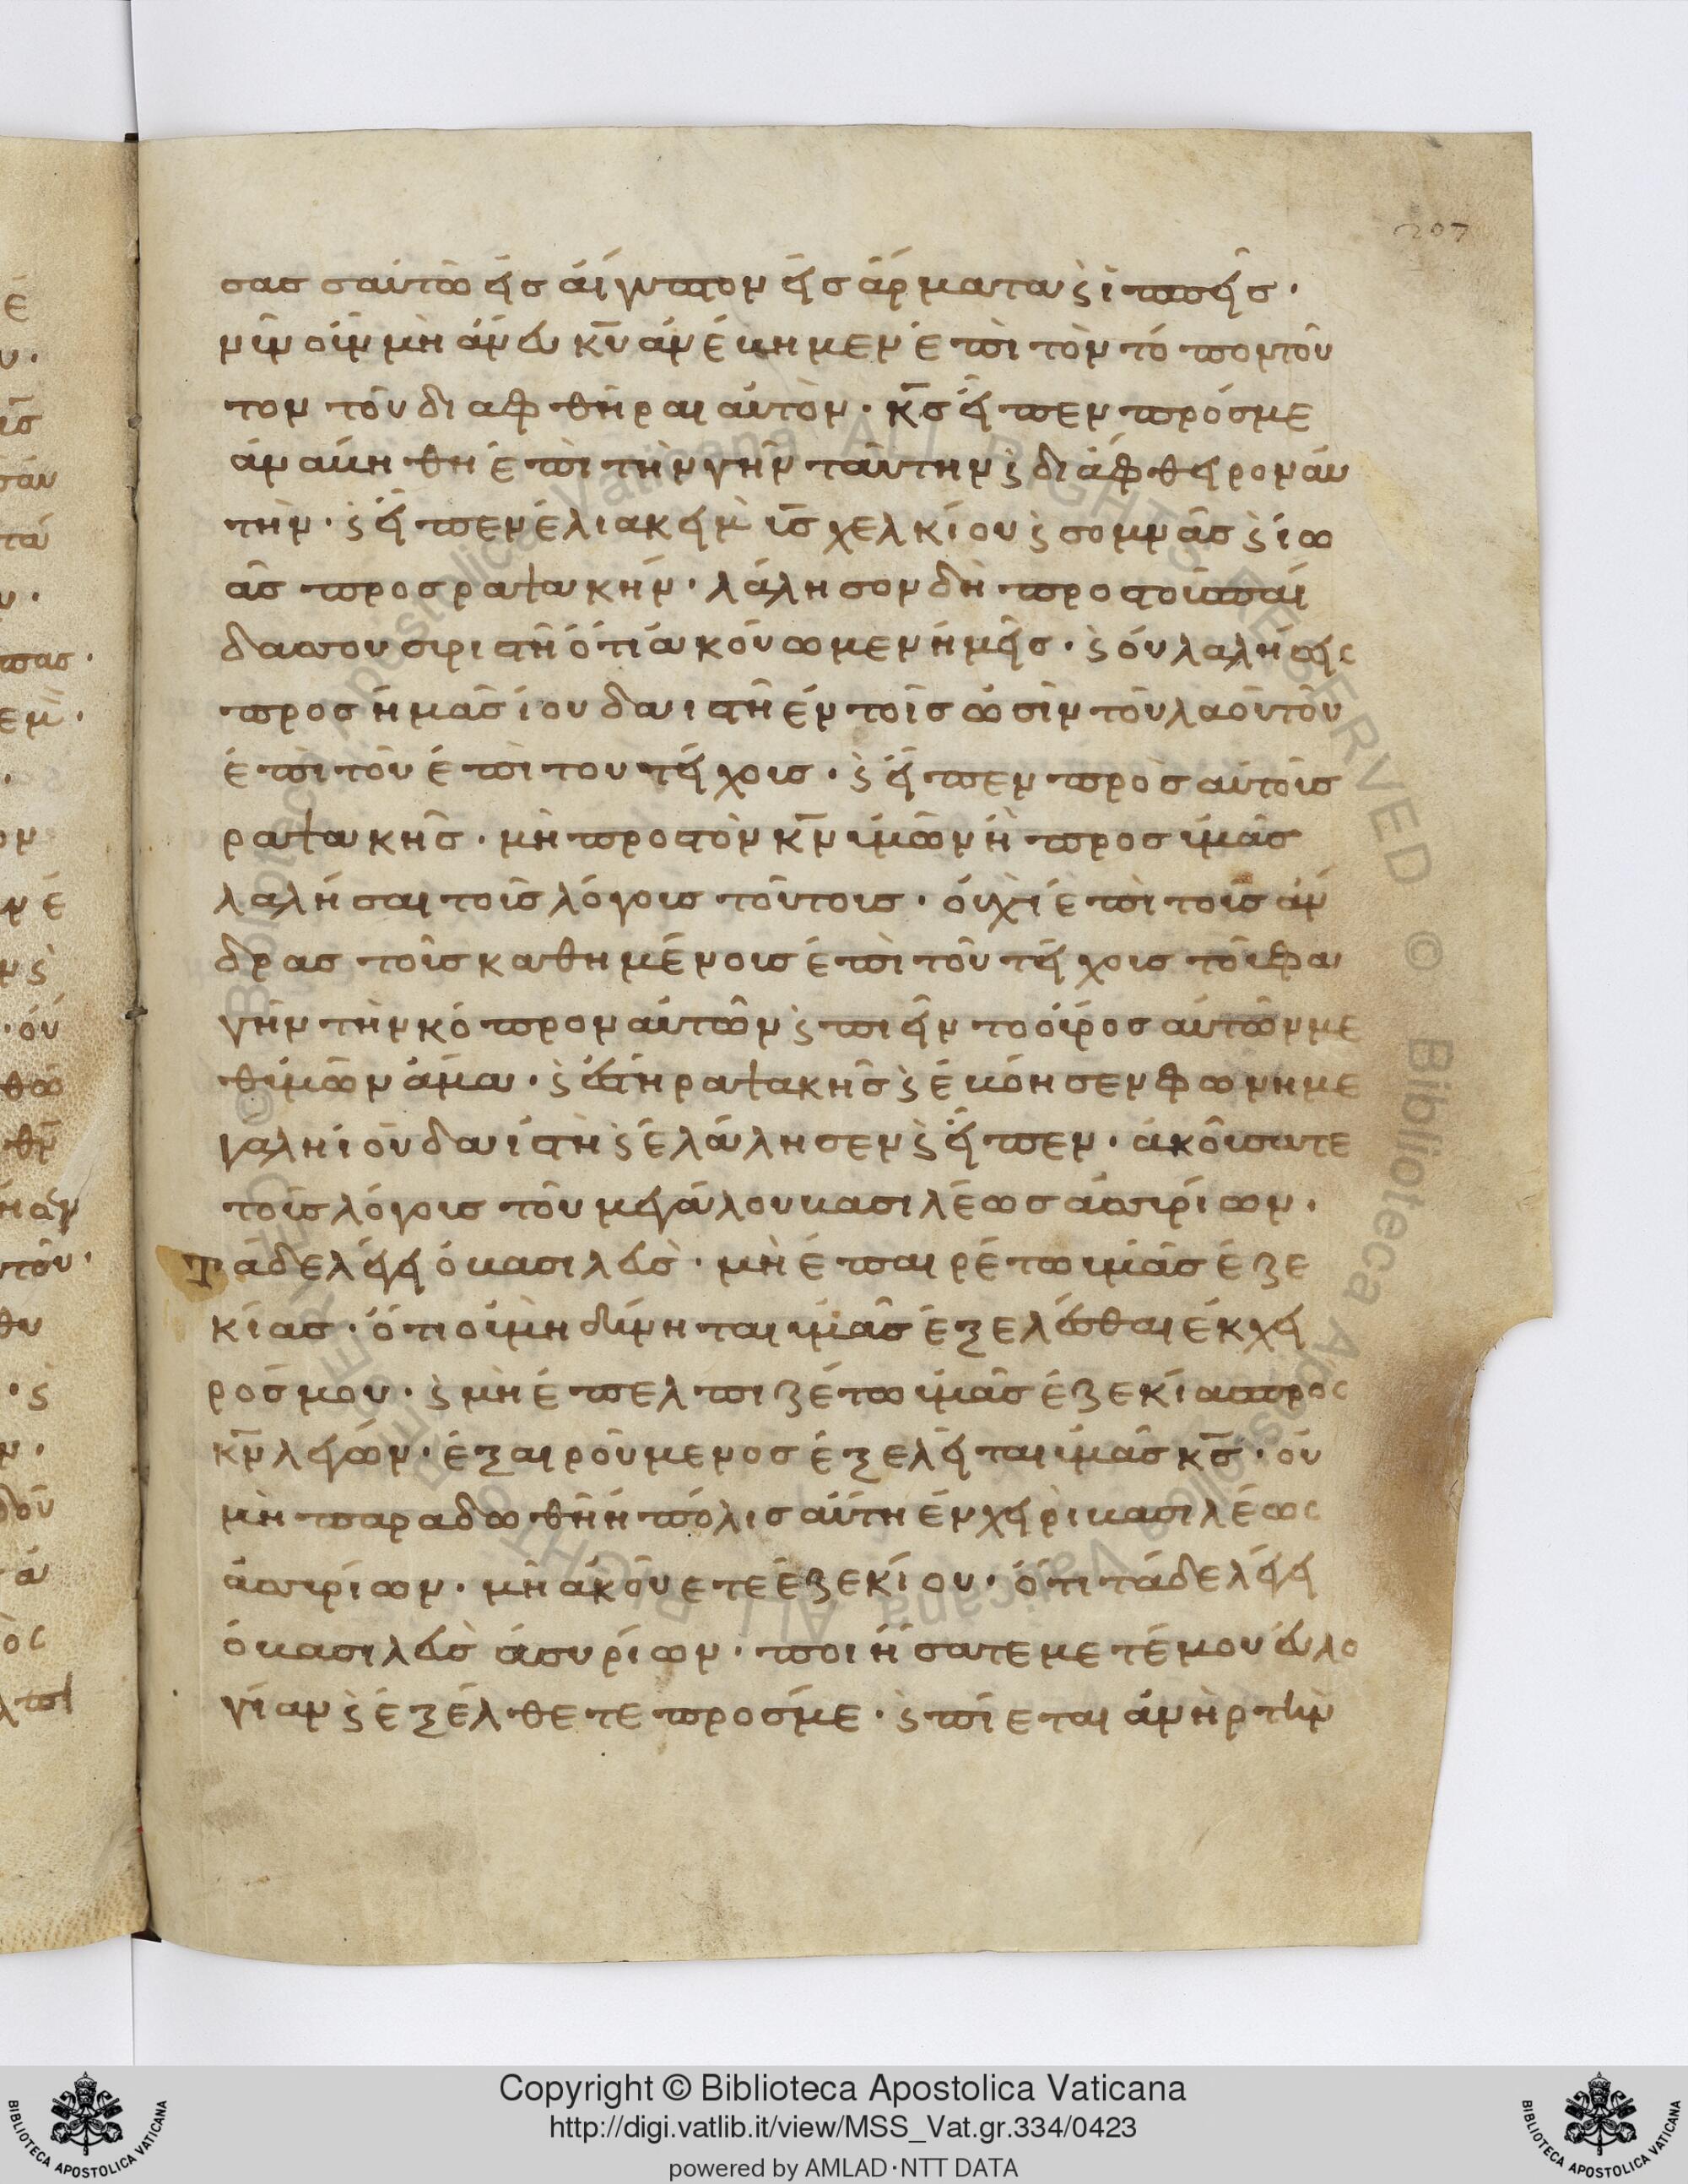 207
σας σαυτῶ εἰς αἴγυπτον εἰς ἅρματα ϗ ἱππεῖς·
νῦν οὖν μὴ ἄνευ κ̅υ̅ ἀνέβημεν ἐπὶ τὸν τόπον τοῦ
τον τοῦ διαφθῆραι αὐτὸν· κ̅ς̅ εἶπεν πρός με
ἀνάβηθι ἐπὶ τὴν γῆν ταύτην ϗ διάφθειρον αὐ
τὴν· ϗ εἶπεν ἐλιακεὶμ υ̅ς̅ χελκίου ϗ σομνᾶς ϗ ἰω
ᾶς πρὸς ραψακήν· λάλησον δὴ πρὸς τοὺς παῖ
δας σου συριστὴ ὅτι ἀκούωμεν ἡμεῖς· ϗ οὐ λαλήσεις
προς ἡμᾶς ἰουδαιστὴ ἐν τοῖς ὠσὶν τοῦ λαοῦ τοῦ
ἐπὶ τοῦ ἐπὶ του τείχους· ϗ εἶπεν πρὸς αὐτοὺς
ραψακης· μὴ πρὸς τὸν κ̅ν̅ ὑμῶν ἢ προς ὑμᾶς
λαλήσαι τοὺς λόγους τούτους· οὐχὶ ἐπὶ τοὺς ἄν
δρας τοὺς καθημένους ἐπὶ τοῦ τείχους τοῦ φα
γεῖν τὴν κόπρον αὐτῶν ϗ πιεῖν το οὖρος αὐτῶν με
θ ὑμῶν ἅμα· ϗ ἔστη ραψακης ϗ ἐβόησεν φωνη με
γαλη ἰουδαιστὴ ϗ ἐλάλησεν ϗ εἶπεν· ἀκούσατε
τοὺς λόγους τοῦ μεγάλου βασιλέως ἀσσυρίων·
Τάδε λέγει ὁ βασιλεὺς· μὴ ἐπαιρέτω ὑμᾶς ἐζε
κίας· ὅτι οὐ μὴ δύνηται ὑμᾶς ἐξελέσθαι ἐκ χει
ρός μου· ϗ μὴ ἐπελπιζέτω ὑμᾶς ἐζεκίας προς
κ̅ν̅ λέγων· ἐξαιρούμενος ἐξελεῖται ὑμᾶς κ̅ς̅· οὐ
μὴ παραδωθῆ ἡ πόλις αὕτη ἐν χειρὶ βασιλέως
ἀσσυρίων· μὴ ἀκούετε ἐζεκίου· ὅτι τάδε λέγει
ὁ βασιλεὺς ἀσυρίων· ποιήσατε μετ ἐμοῦ εὐλο
γίαν ϗ ἐξέλθετε προς με· ϗ πίεται ἀνὴρ τὴν
Copyright © Biblioteca Apostolica Vaticana
http://digi.vatlib.it/view/MSS_Vat.gr.334/0423
powered by AMLAD·NTT DATA